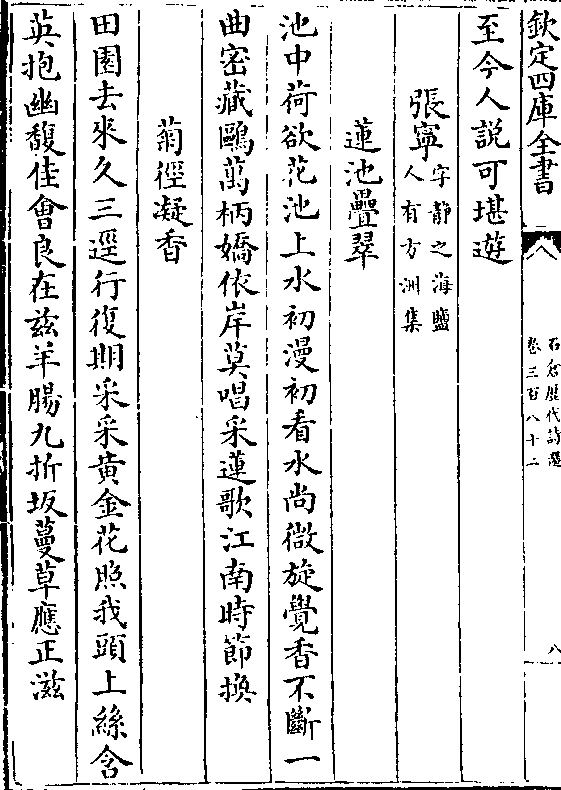 欽定四庫全書
石倉歷代詩選
卷三百八十二
八
至今人說可堪遊
張寧字靜之海鹽
人有方洲集
蓮池疊翠
池中荷欲花池上水初漫初看水尚微旋覺香不斷一
曲密藏鷗萬柄嬌依岸莫唱采蓮歌江南時節換
菊徑凝香
田園去來久三逕行復期采采黃金花照我頭上絲含
英抱幽馥佳會良在茲羊腸九折坂蔓草應正滋